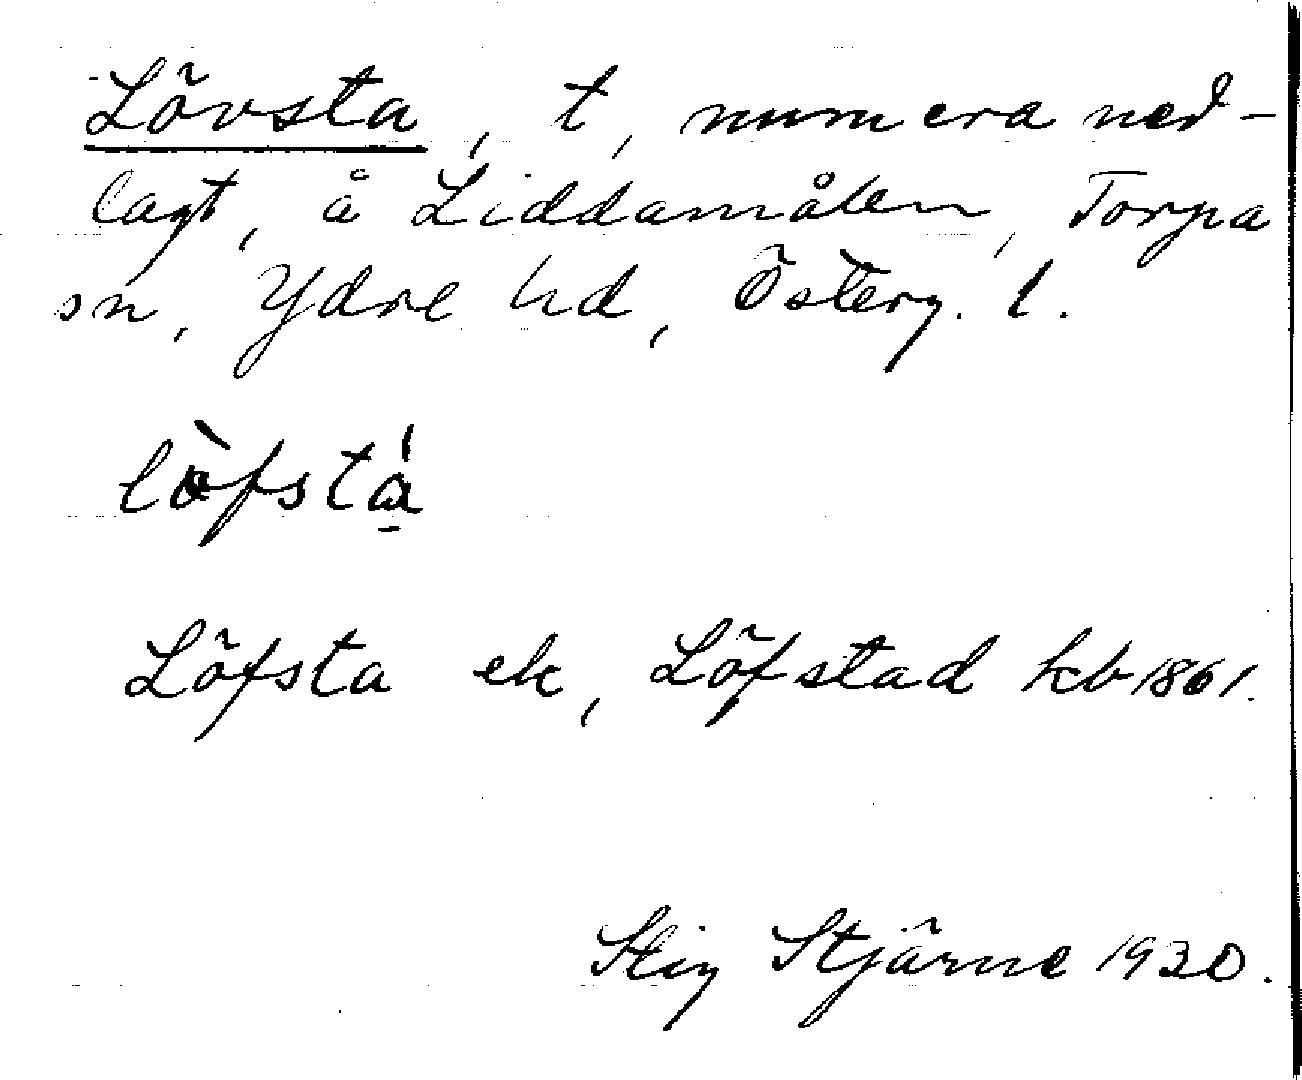 Lövsta, t, numera ned-
lagt, å Liddamålen, Torpa
sn, Ydre hd, Österg. l.
lòfstá̠
Löfsta ek, Löfstad kb 1861.
Stig Stjärne 1930.